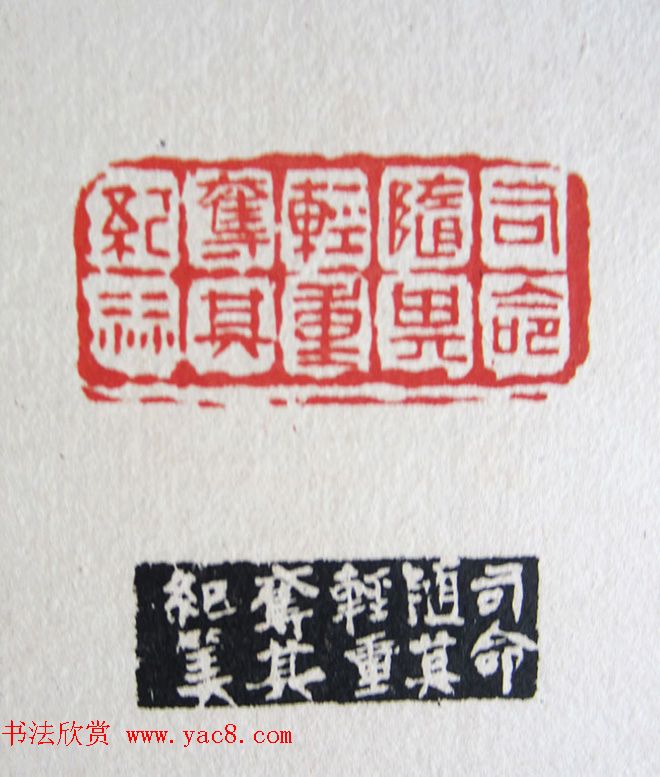 司命
隨其
輕重
奪其
紀祘
司命
隨其
輕重
奪其
紀筭
书法欣赏 www.yac8.com